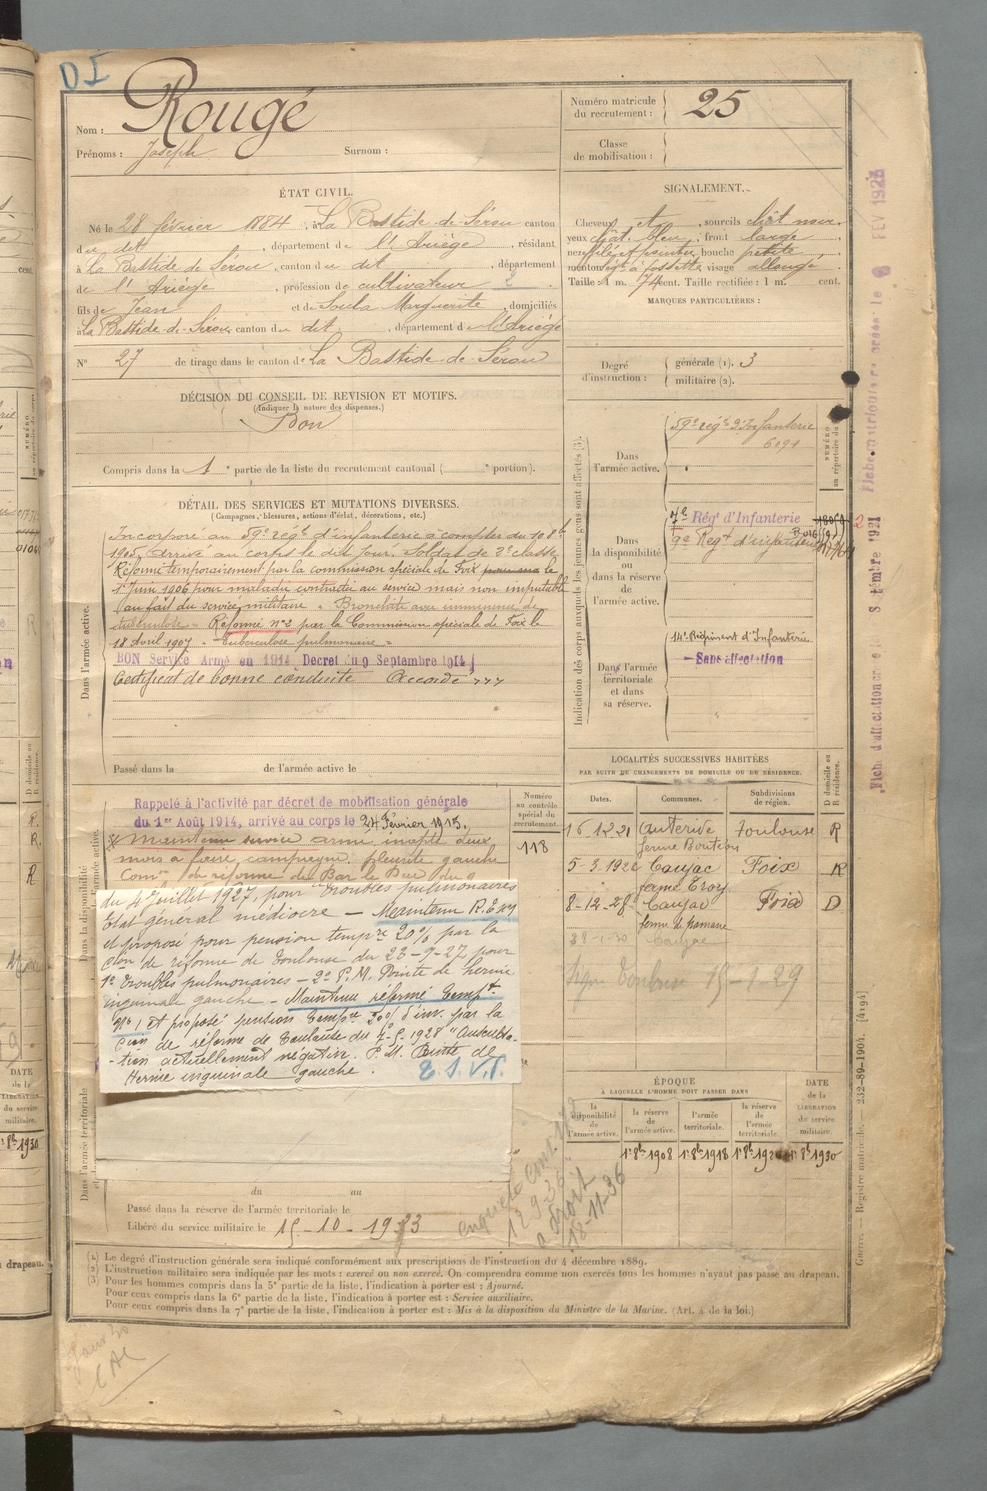 D I
Nom : Rougé
Prénoms : Joseph Surnom :
Numéro matricule du recrutement : 25
Classe de mobilisation :
ÉTAT CIVIL.
Né le 28 février 1884, à La Bastide-de-Sérou canton
du dit, département de l'Ariège, résidant
à La Bastide de Sérou, canton du dit, département
de l'Ariège, profession de cultivateur 2
fils de Jean et de Soula Marguerite, domiciliés
à La Bastide-de-Sérou canton du dit, département de l'Ariège
N° 27 de tirage dans le canton de La Bastide-de-Sérou
SIGNALEMENT.
Cheveux sourcils chât noir
yeux chât. bleu, front large
nez effilé et pointu bouche petite
menton à fossette visage allongé
Taille : 1 m. 74 cent. Taille rectifiée : 1 m. cent.
MARQUES PARTICULIÈRES :
Degré d'instruction : générale (1). 3
militaire (2).
DÉCISION DU CONSEIL DE REVISION ET MOTIFS.
(Indiquer la nature des dispenses.)
Bon
Compris dans la 1e partie de la liste du recrutement cantonal ( e portion).
DÉTAIL DES SERVICES ET MUTATIONS DIVERSES.
(Campagnes, blessures, actions d'éclat, décorations, etc.)
Dans l'armée active.
Incorporé au 59e régt d'infanterie à compter du 10 8bre
1905, arrivé au corps le dit jour. Soldat de 2e classe
Réformé temporairement par la commission spéciale de Foix le
1er Juin 1906 pour maladie contractée au service mais non imputable
au fait du service militaire « Bronchite avec imminence de
tuberculose » Réformé n°2 par la Commission spéciale de Foix le
18 Avril 1907 « Tuberculose pulmonaire »
BON Service Armé en 1914 Decret du 9 Septembre 1914
Certificat de bonne conduite Accordé
Passé dans la de l'armée active le
Indication des corps auxquels les jeunes gens sont affectés (3).
NUMÉRO au répertoire du corps
Dans l'armée active.
59e régt d'Infanterie
6091
Dans la disponibilité ou dans la réserve de l'armée active.
7e Régt d'Infanterie
9e Regt d'infanterie
Dans l'armée territoriale et dans sa réserve.
14e Régiment d'Infanterie
Sans affectation
Rappelé à l'activité par décret de mobilisation générale
du 1er Août 1914, arrivé au corps le 24 Février 1915.
Maintenu service armé inapte deux
mois à faire campagne pleurite gauche
Comon de réforme de Bar le Duc du 9
Numéro au contrôle spécial du recrutement.
118
du 4 Juillet 1927, pour "Troubles pulmonaires
Etat général médiocre – Maintenu R.T n°1
et proposé pour pension tempre 20% par la
Cion de réforme de Toulouse du 23-9-27 pour
1° Troubles pulmonaires – 2° P.M. Pointe de hernie
inguinale gauche – Maintenu réformé tempre
N° 1 et proposé pension tempre 20% d'inv. par la
Cion de réforme de Toulouse du 7-5-1928 "Auscultation
actuellement négative. P.M. Pointe de
Hernie inguinale gauche.
T.S.V.P.
Dans l'armée territoriale
LOCALITÉS SUCCESSIVES HABITÉES
PAR SUITE DE CHANGEMENTS DE DOMICILE OU DE RÉSIDENCE.
Dates. Communes. Subdivisions de région. D domicile ou R résidence.
16.12.21 Auterive Toulouse R
5-3.192 Caujac Foix R
8-12-28 Caujac Foix D
Caujac
Toulouse 15-1-29
ÉPOQUE
À LAQUELLE L'HOMME DOIT PASSER DANS
la disponibilité de l'armée active.
la réserve de l'armée active.
l'armée territoriale.
la réserve de l'armée territoriale.
DATE de la LIBÉRATION du service militaire.
1er 8bre 1908 1er 8bre 1918 1er 8bre 192 1er 8bre 1930
du au
Passé dans la réserve de l'armée territoriale le
Libéré du service militaire le 15-10-1933
enquête
18-11-36
(1) Le degré d'instruction générale sera indiqué conformément aux prescriptions de l'instruction du 4 décembre 1889.
(2) L'instruction militaire sera indiquée par les mots : exercé ou non exercé. On comprendra comme non exercés tous les hommes n'ayant pas passé au drapeau.
(3) Pour les hommes compris dans la 5e partie de la liste, l'indication à porter est : Ajourné.
Pour ceux compris dans la 6e partie de la liste, l'indication à porter est : Service auxiliaire.
Pour ceux compris dans la 7e partie de la liste, l'indication à porter est : Mis à la disposition du Ministre de la Marine. (Art. 4 de la loi.)
Guerre. — Registre matricule. 232-89-1904. [4194]
DATE de la LIBÉRATION du service militaire.
8bre 1930
drapeau.